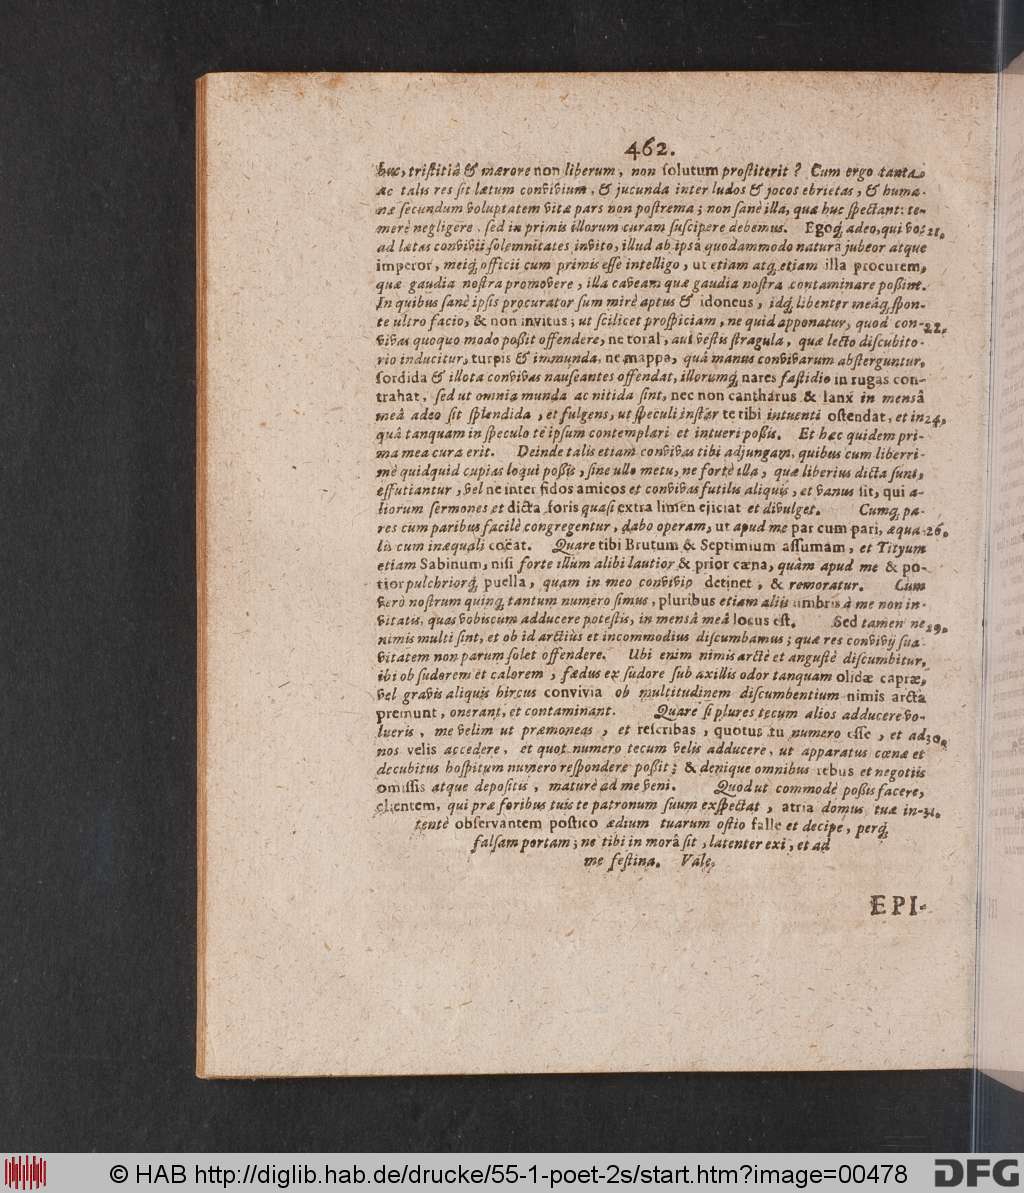 462.
huc, tristitiâ & mærore non liberum, non solutum prostiterit? Cum ergo tanta
ac talis res sit lætum convivium, & jucunda inter ludos & jocos ebrietas, & huma-
næ secundum voluptatem vitæ pars non postrema; non sanè illa, quæ huc spectant: te-
merè negligere, sed in primis illorum curam suscipere debemus. Egoq́ adeo, qui vos 21.
ad lætas convivii solemnitates invito, illud ab ipsa quodammodo natura jubeor atque
imperor, meiq́ officii cum primis esse intelligo, ut etiam atq́ etiam illa procurem,
quæ gaudia nostra promovere, illa caveam quæ gaudia nostra contaminare possint.
In quibus sanè ipsis procurator sum mirè aptus & idoneus, idq́ libenter meâq́ spon-
te ultro facio, & non invitus; ut scilicet prospiciam, ne quid apponatur, quod con- 22.
vivas quoquo modo possit offendere, ne toral, aut vestis stragula, quæ lecto discubito-
rio inducitur, turpis & immunda, ne mappa, quâ manus convivarum absterguntur,
sordida & illota convivas nauseantes offendat, illorumq́ nares fastidio in rugas con-
trahat, sed ut omnia munda ac nitida sint, nec non cantharus & lanx in mensâ
meâ adeo sit splendida, et fulgens, ut speculi instar te tibi intuenti ostendat, et in 24.
quâ tanquam in speculo te ipsum contemplari et intueri possis. Et hæc quidem pri-
ma mea cura erit. Deinde talis etiam convivas tibi adjungam, quibus cum liberri-
mè quidquid cupias loqui possis, sine ullo metu, ne fortè illa, quæ liberius dicta sunt,
effutiantur, vel ne inter fidos amicos et convivas futilis aliquis, et vanus sit, qui a-
liorum sermones et dicta foris quasi extra limen ejiciat et divulget. Cumq́ pa-
res cum paribus facilè congregentur, dabo operam, ut apud me par cum pari, æqua- 26.
lis cum inæquali coëat. Quare tibi Brutum & Septimium assumam, et Tityum
etiam Sabinum, nisi forte illum alibi lautior & prior cæna, quàm apud me & po-
tior pulchriorq́ puella, quam in meo convivio detinet, & remoratur. Cum
verò nostrum quinq́ tantum numero simus, pluribus etiam aliis umbris à me non in-
vitatis, quas vobiscum adducere potestis, in mensâ meâ locus est. Sed tamen ne 29.
nimis multi sint, et ob id arctiùs et incommodius discumbamus; quæ res convivij sua-
vitatem non parum solet offendere. Ubi enim nimis arctè et angustè discumbitur,
ibi ob sudorem et calorem, fædus ex sudore sub axillis odor tanquam olidæ capræ,
vel gravis aliquis hircus convivia ob multitudinem discumbentium nimis arcta
premunt, onerant, et contaminant. Quare si plures tecum alios adducere vo-
lueris, me velim ut præmoneas, et rescribas, quotus tu numero esse, et ad 30.
nos velis accedere, et quot numero tecum velis adducere, ut apparatus cœnæ et
decubitus hospitum numero respondere possit; & denique omnibus rebus et negotiis
omissis atque depositis, maturè ad me veni. Quod ut commodè possis facere,
clientem, qui præ foribus tuis te patronum suum exspectat, atria domus tuæ in- 31.
tentè observantem postico ædium tuarum ostio falle et decipe, perq́
falsam portam; ne tibi in morâ sit, latenter exi, et ad
me festina. Vale.
EPI-
© HAB http://diglib.hab.de/drucke/55-1-poet-2s/start.htm?image=00478
DFG